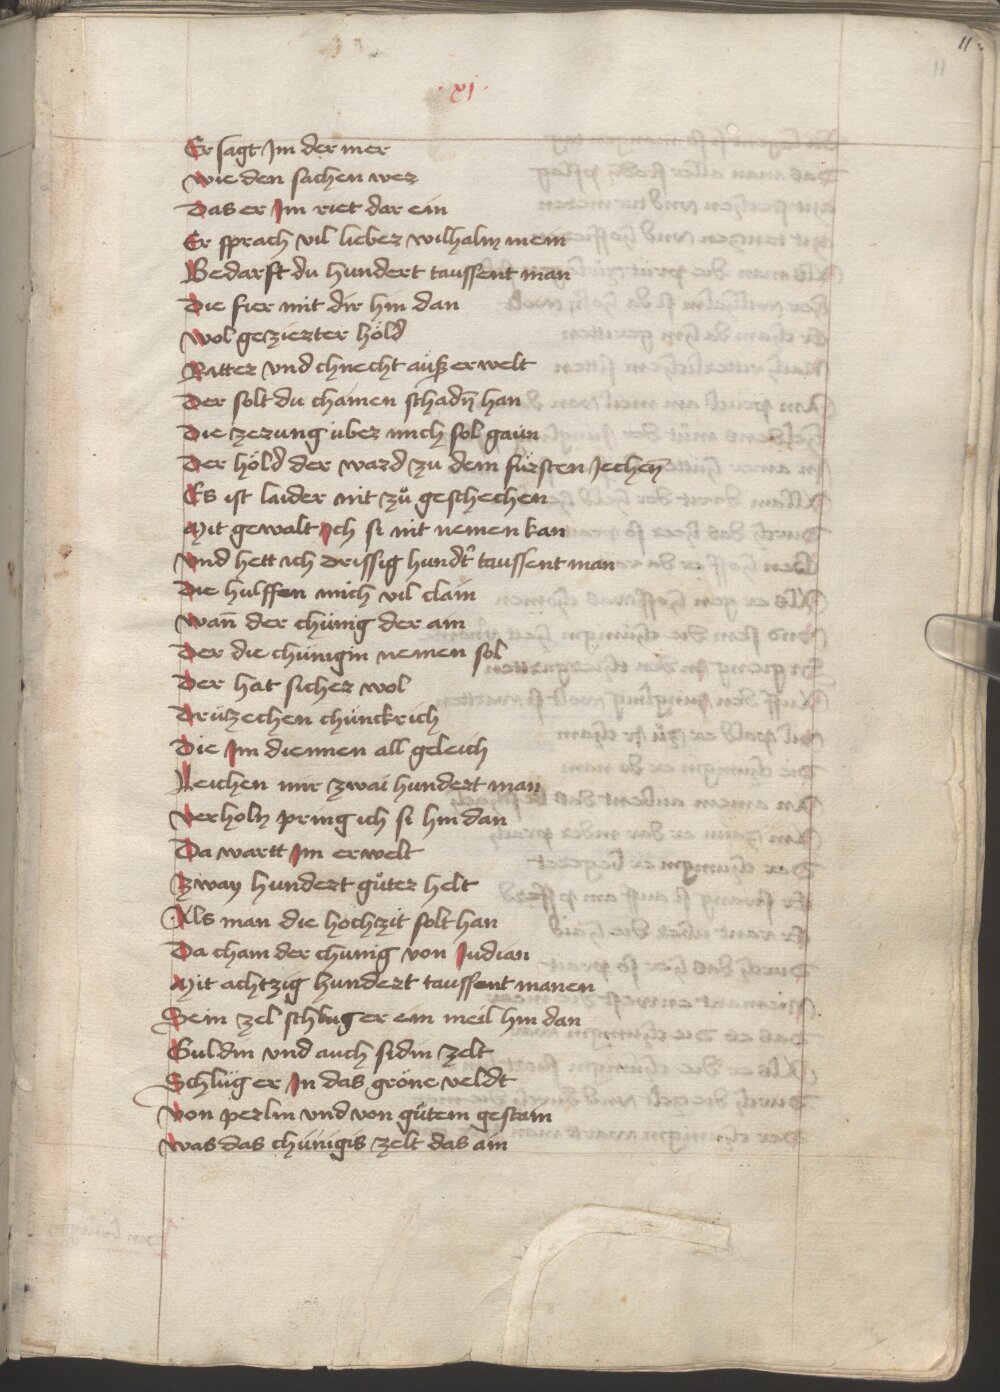 11
11
· xi ·
Er sagt Im der mer
wie den sachen wer
Das er Im riet dar ein
Er sprach vil lieber wilhalm mein
Bedarft du hundert taussent man
Die fier mit dir hin dan
wol geczierter höld
Ritter vnd chnecht auß erwelt
Der solt du chainen schadn̄ han
Die zerung über mich sol gaun
Der höld der ward zu dem fürsten Jechen̄
Es ist laider nit zů geschechen
Mit gewalt Ich si nit nemen kan
vnd hett ich drissig hundt͛ taussent man
Die hulffen mich vil clain
wan̄ der chünig der am
Der die chünigin nemen sol
Der hat sicher wol
Drützechen chünckrich
Die Im diennen all geleich
Leichen mir zwai hundert man
verholn pring ich si hin dan
Da wartt Im erwelt
Zway hundert gůter helt
Als man die hochzit solt han
Da cham der chunig von Judian
Mit achtzig hundert taussent manen
Sein zel schlug er ein meil hin dan
Guldin vnd auch sidin zelt
Schlüg er In das gröne veldt
von perlin vnd von gůtem gestain
was das chünigis zelt das ain